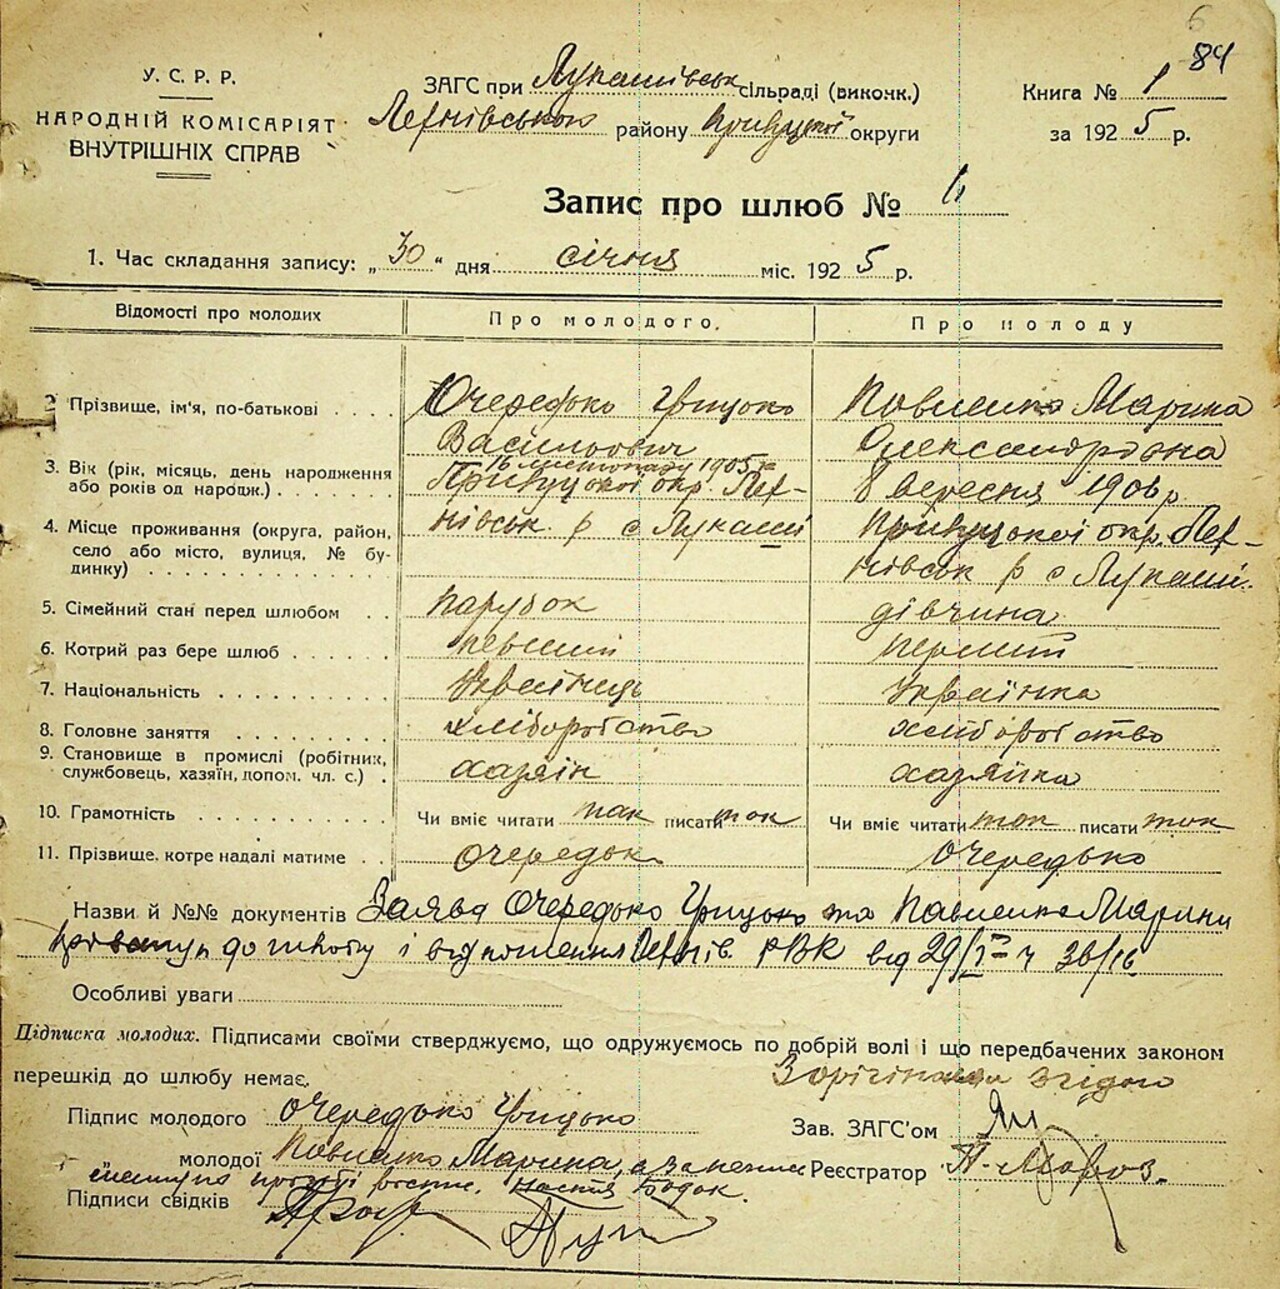 6
84
У. С. Р. Р.
НАРОДНІЙ КОМІСАРІЯТ
ВНУТРІШНІХ СПРАВ
ЗАГС при Лукашівськ сільраді (виконк.)
району Прилуцкої округи
Книга № 1
за 1925 р.
Запис про шлюб №
1. Час складання запису: „30" дня січня міс. 1925 р.
Відомості про молодих
Про молодого.
Про молоду
2. Прізвище, ім'я, по-батькові
Очередько Грицько
Васильович
Павленко Марина
Олександрівна
3. Вік (рік, місяць, день народження
або років од народж.)
16 листопаду 1905 р
8 вересня 1906 р
4. Місце проживання (округа, район,
село або місто, вулиця, № бу-
динку)
Прилуцкої окр.
нівськ. р с Лукаші
Прилуцкої окр.
нівськ р с Лукаші.
5. Сімейний стан перед шлюбом
парубок
дівчина
6. Котрий раз бере шлюб
перший
7. Національність
Українець
Українка
8. Головне заняття
хліборобство
хліборобство
9. Становище в промислі (робітник,
службовець, хазяїн, допом. чл. с.)
хазяїн
хазяйка
10. Грамотність
Чи вміє читати так писати так
Чи вміє читати так писати так
11. Прізвище, котре надалі матиме
Очередько
Очередько
Назви й №№ документів Заява Очередько Грицько та Павленко Марини
до шлюбу і відношення РВК від 29/I
Особливі уваги
Підписка молодих. Підписами своїми стверджуємо, що одружуємось по добрій волі і що передбачених законом
перешкід до шлюбу немає.
З орігіналом згідно
Підпис молодого Очередько Грицько
Зав. ЗАГС'ом
„ молодої Павленко Марина, а за неї
Реєстратор
Настя
Підписи свідків